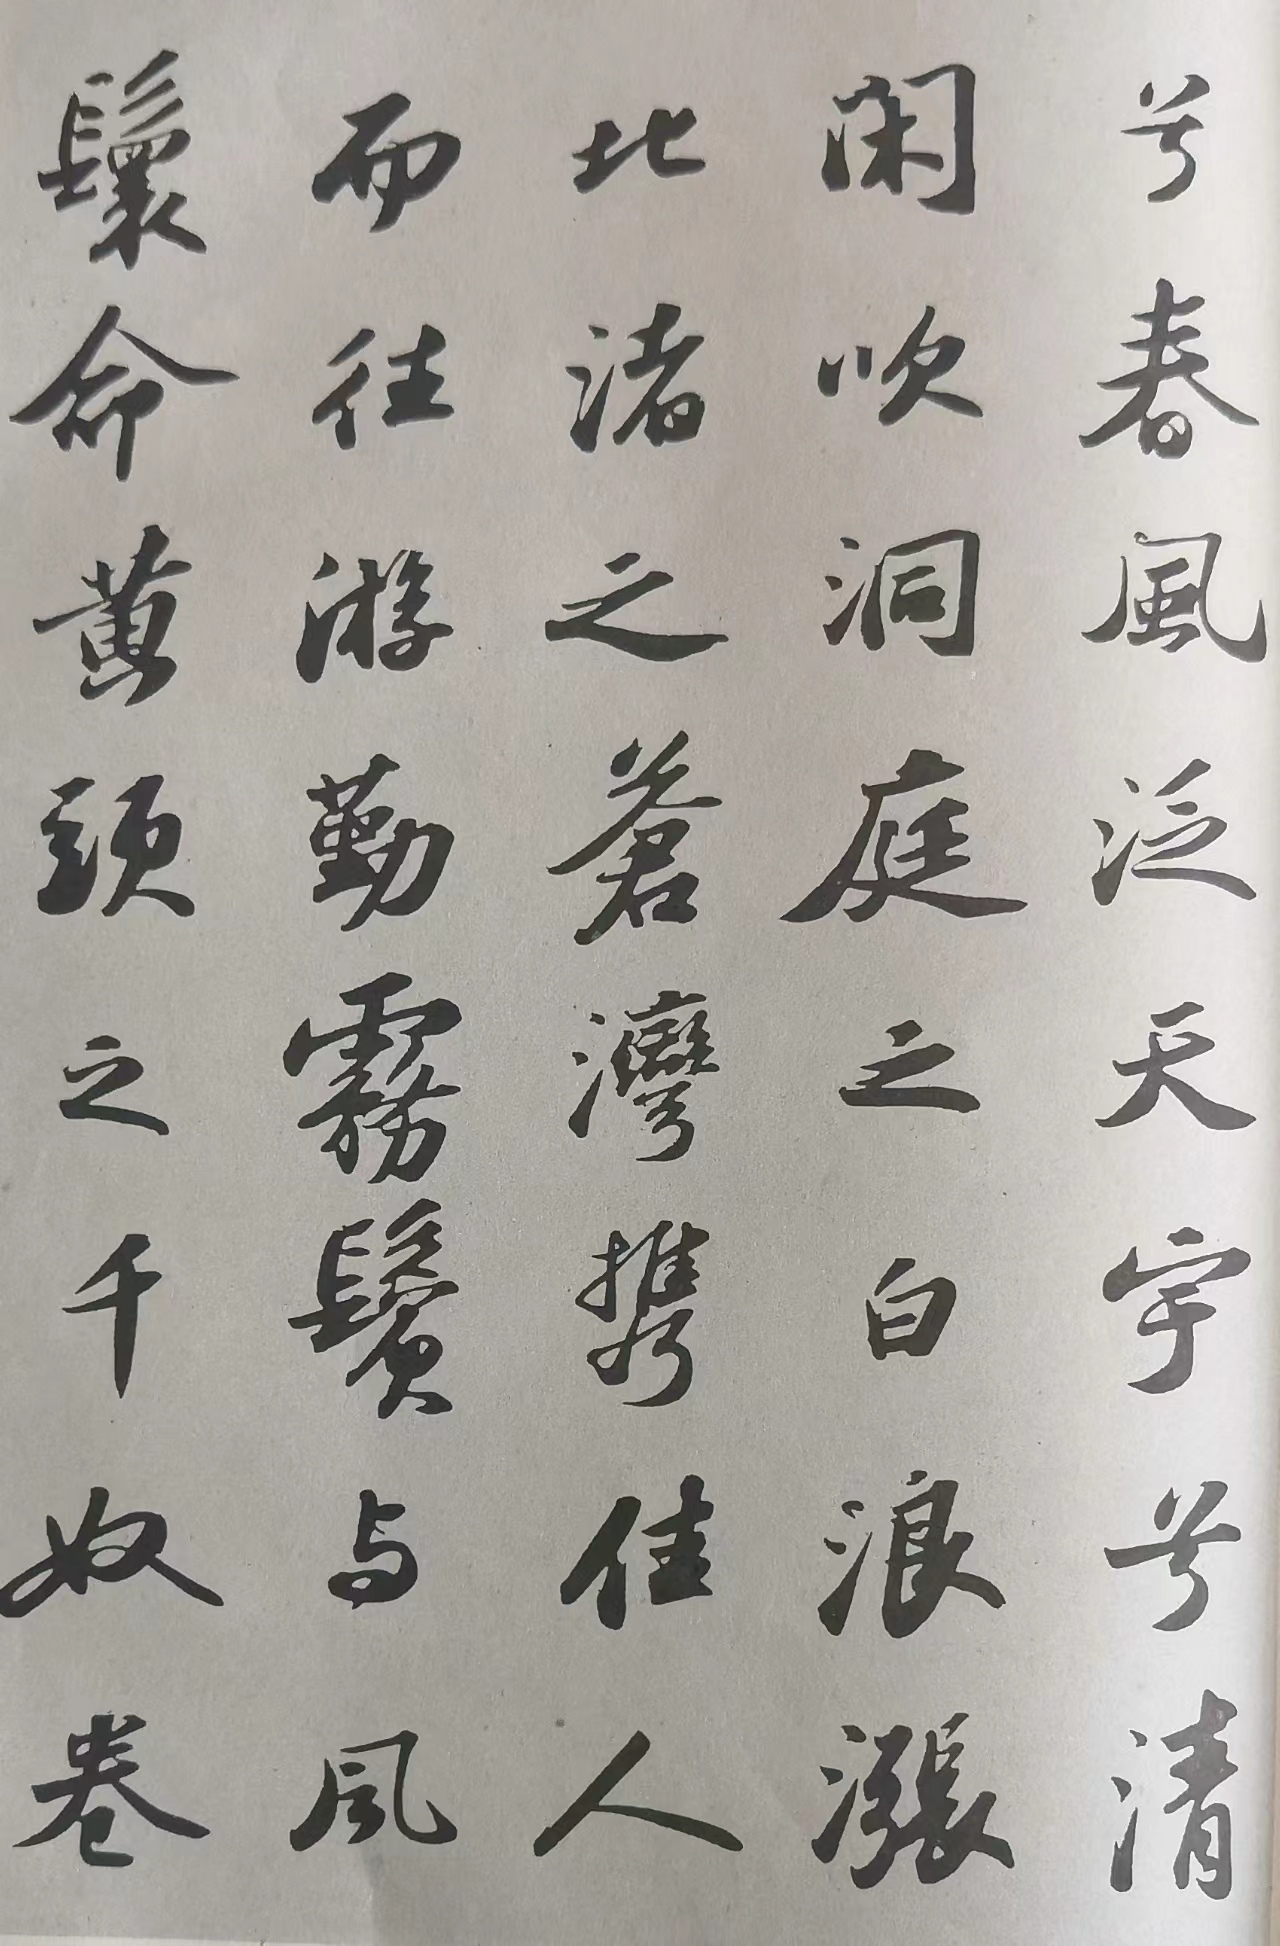 兮春風泛天宇兮清
閑吹洞庭之白浪漲
北渚之蒼灣携佳人
而往游勤霧鬢与風
鬟命黄頭之千奴卷